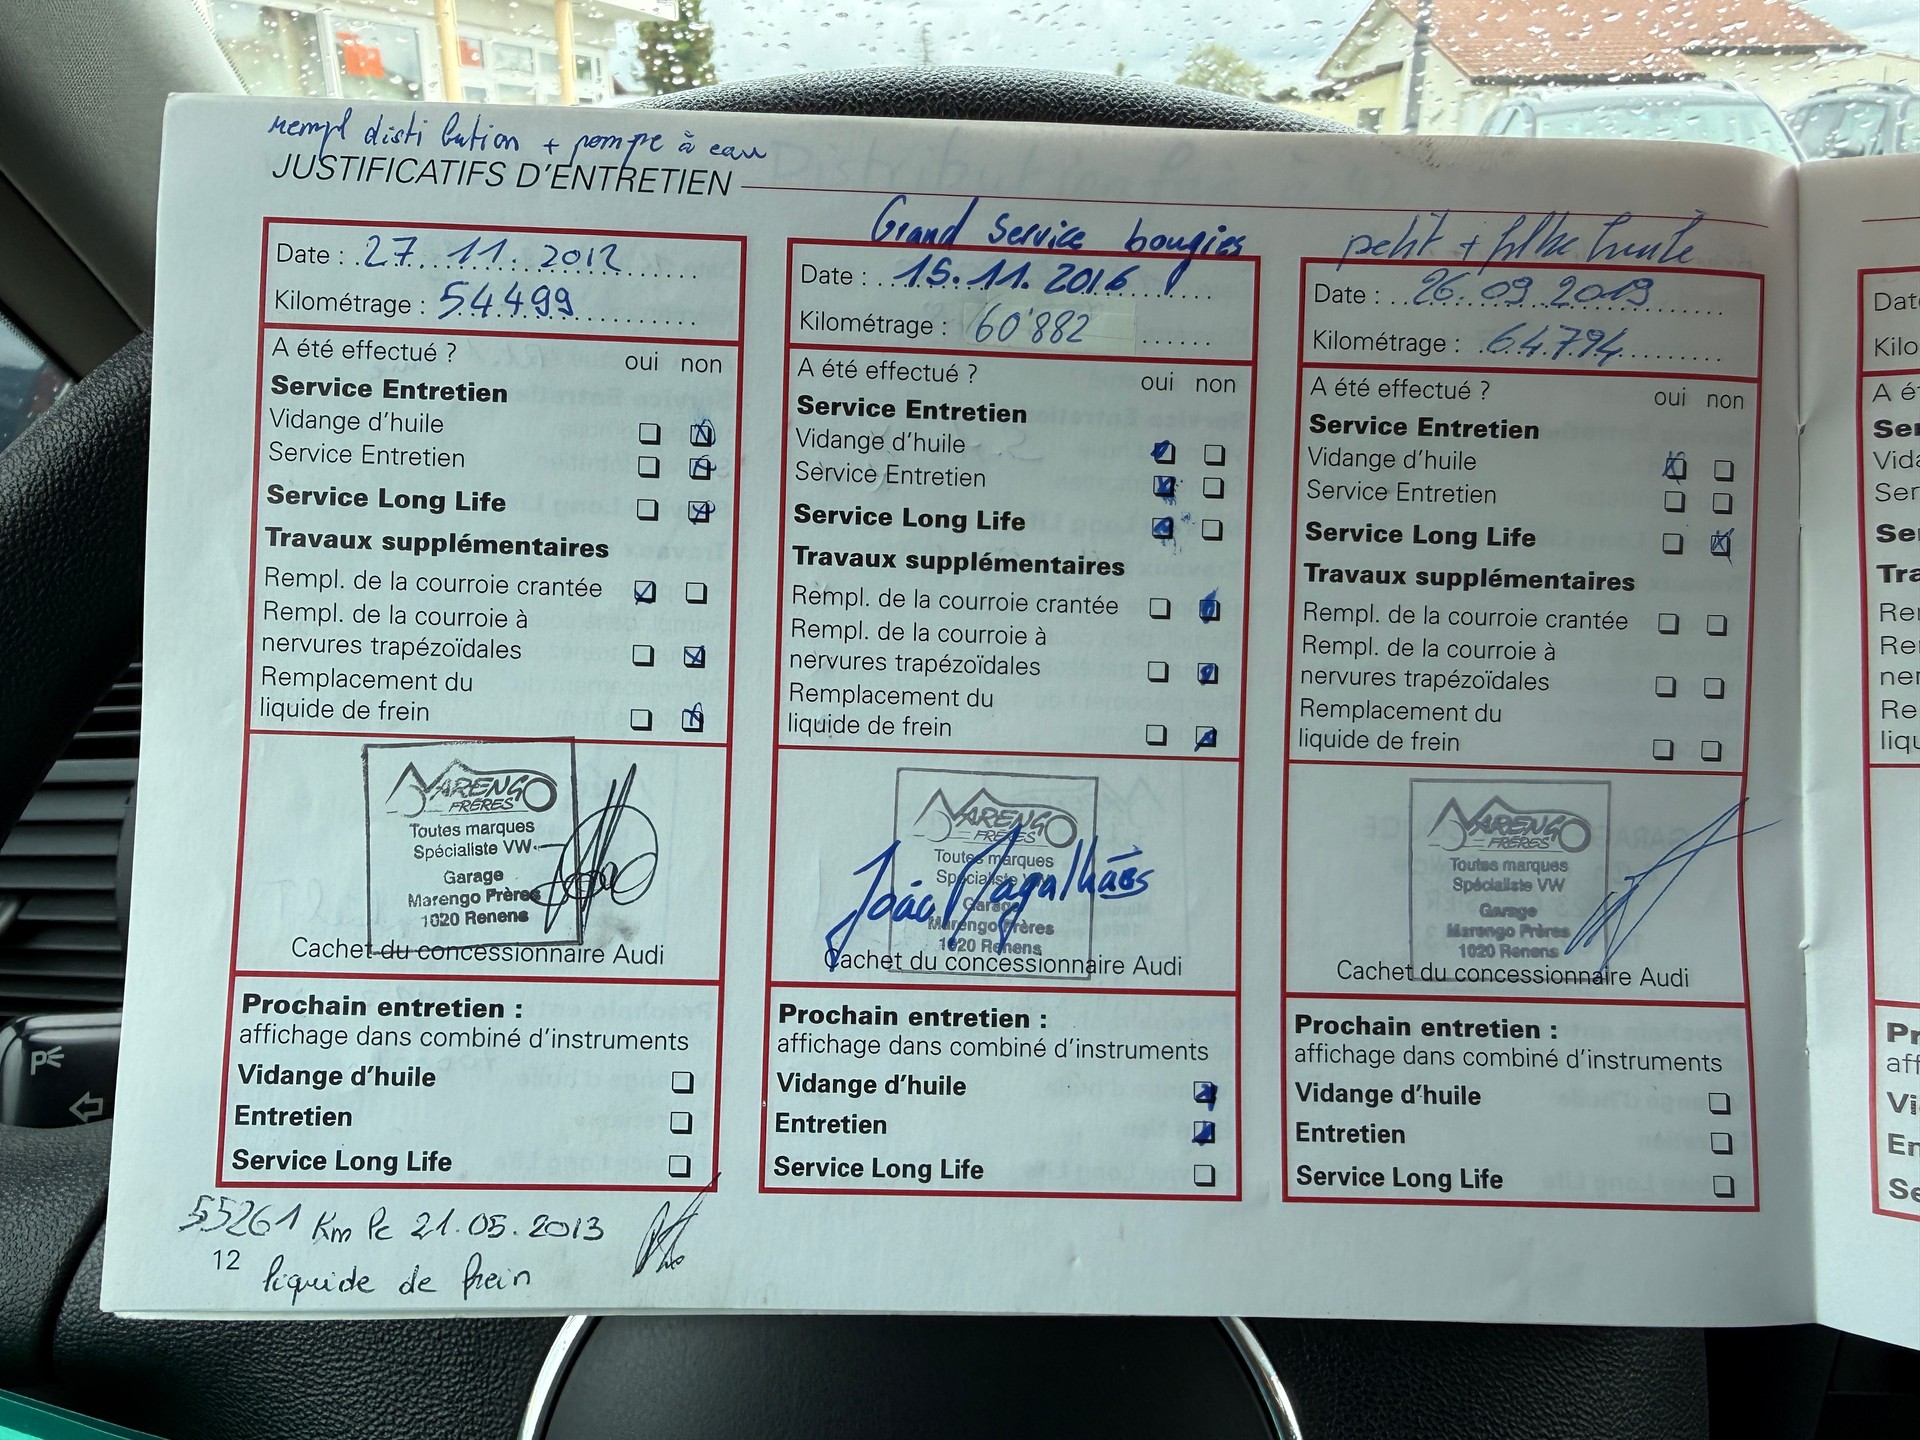 rempl distribution + pompe à eau
JUSTIFICATIFS D'ENTRETIEN
Date : 27.11.2012
Kilométrage : 54499
A été effectué ? oui non
Service Entretien
Vidange d'huile
Service Entretien
Service Long Life
Travaux supplémentaires
Rempl. de la courroie crantée
Rempl. de la courroie à
nervures trapézoïdales
Remplacement du
liquide de frein
MARENGO
FRERES
Toutes marques
Spécialiste VW
Garage
Marengo Frères
1020 Renens
Cachet du concessionnaire Audi
Prochain entretien :
affichage dans combiné d'instruments
Vidange d'huile
Entretien
Service Long Life
55261 Km le 21.05.2013
12
liquide de frein
Grand Service bougies
Date : 15.11.2016
Kilométrage : 60'882
A été effectué ? oui non
Service Entretien
Vidange d'huile
Service Entretien
Service Long Life
Travaux supplémentaires
Rempl. de la courroie crantée
Rempl. de la courroie à
nervures trapézoïdales
Remplacement du
liquide de frein
MARENGO
FRERES
Toutes marques
Spécialiste VW
João Magalhães
Garage
Marengo Frères
1020 Renens
Cachet du concessionnaire Audi
Prochain entretien :
affichage dans combiné d'instruments
Vidange d'huile
Entretien
Service Long Life
petit + filtre huile
Date : 26.09.2019
Kilométrage : 64.794
A été effectué ? oui non
Service Entretien
Vidange d'huile
Service Entretien
Service Long Life
Travaux supplémentaires
Rempl. de la courroie crantée
Rempl. de la courroie à
nervures trapézoïdales
Remplacement du
liquide de frein
MARENGO
FRERES
Toutes marques
Spécialiste VW
Garage
Marengo Frères
1020 Renens
Cachet du concessionnaire Audi
Prochain entretien :
affichage dans combiné d'instruments
Vidange d'huile
Entretien
Service Long Life
P